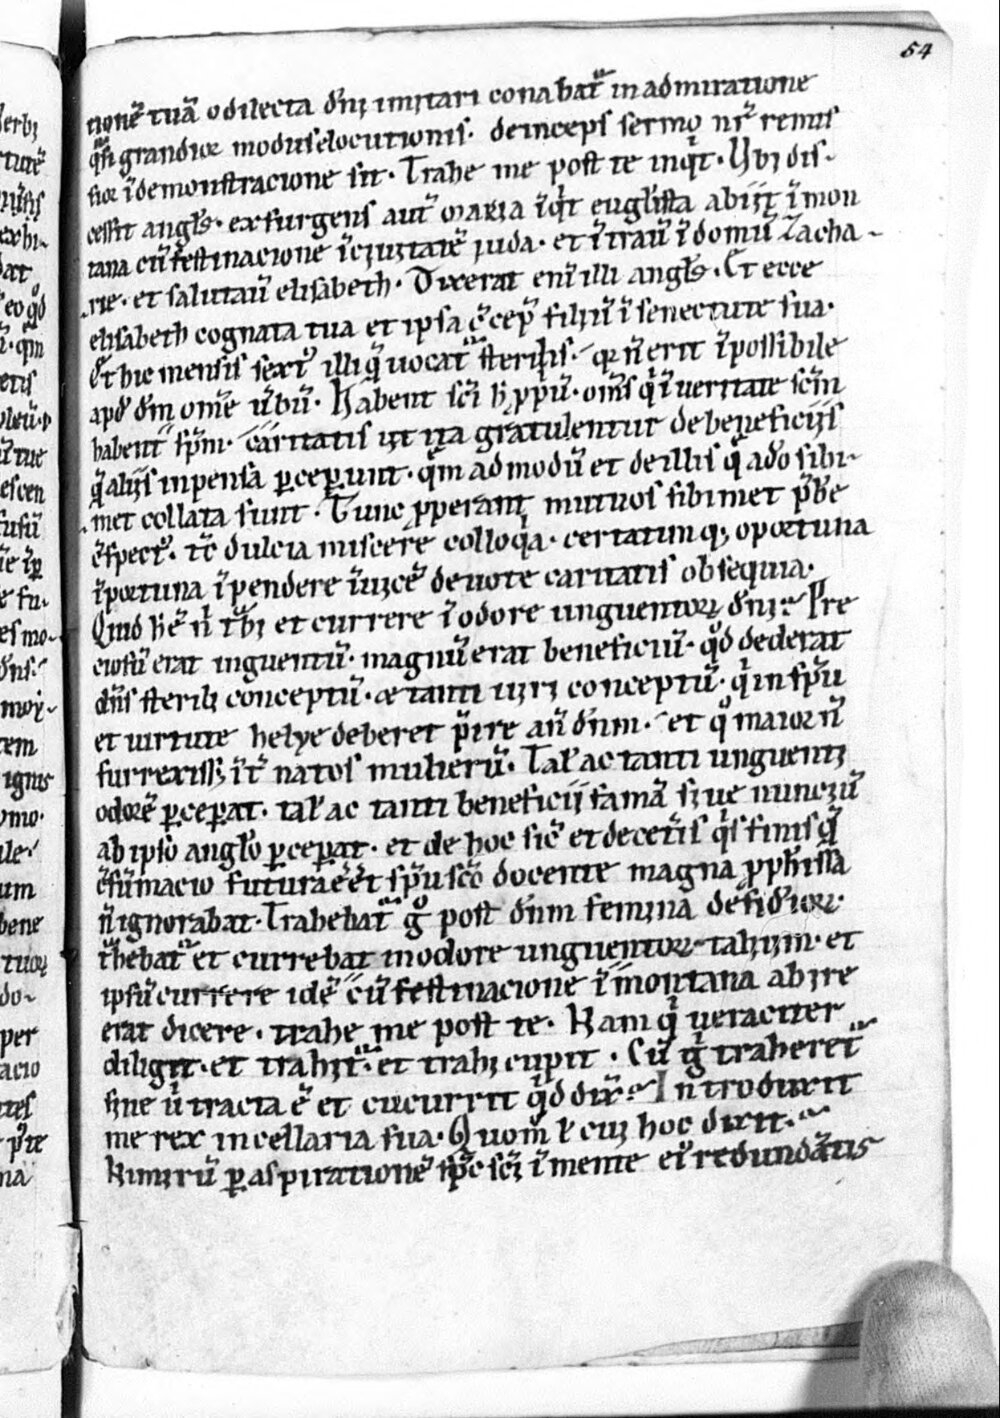 54
tionē tuā o dilecta dn̄i imitari conabat᷑ in admiratione
qn̄ grandior modus elocutionis. deinceps sermo nr̄ remis
sior ī demonstracione sit. Trahe me post te inqͥt. Ubi dis-
cessit angls̄. exsurgens aut̄ maria īqͥt euglista abiit ī mon
tana cū festinacione ī ciuitatē iuda. et ītrauͭ ī domū zacha-
rie. et salutauͭ elisabeth. Dixerat eni illi angls̄. Et ecce
elisabeth cognata tua et ipsa c̄cep̄ filiū ī senectute sua.
Et hic mensis sextꝰ illi q̄ uocat᷑ sterilis. qr n̄ erit īpossibile
apd̓ dm̄ ome ūbū. Habent sc̄i h̄ ꝓpū. om̄s qͥ ī ueritate sc̄m
habent sp̄m. caritatis ut ita gratulentur de beneficiis
q̄ aliis inpensa ꝑceperunt. qm̄ ad modū et de illis q̄ a do sibi-
met collata sunt. Tunc ꝓperant mutuos sibimet p̄be
c̄spectꝰ. tc̄ dulcia miscere colloqͥa. certatimq; oportuna
īportuna īpendere īuicē deuote caritatis obsequia.
Quid h̄ ē n̄ tͣhi et currere ī odore unguentoꝝ dn̄i? Pre
ciosū erat unguentū. magnū erat beneficiū. qd̓ dederat
dn̄s sterili conceptū. ac tanti uiri conceptū. qͥ in sp̄u
et uirtute helye deberet p̄ire an̄ dn̄m. et qͦ maior n̄
surrexiss; īt̄ natos mulierū. Tal̓ ac tanti unguenti
odorē ꝑceperat. tal̓ ac tanti beneficii famā siue nunciū
ab ipso anglo ꝑceperat. et de hoc sic̄ et de cet̄is qͥs finis q̄
c̄sūmacio futura ēēt sp̄u sc̄o docente magna ꝓph̄issa
n̄ ignorabat. Trahebat᷑ gͦ post dn̄m femina desidior.
tͣhebat᷑ et currebat in odore unguentoꝝ talium. et
ipsū currere idē cū festinacione ī montana abire
erat dicere. trahe me post te. Nam qͥ ueraciter
diligit. et trahit᷑. et trahi cupit. Cū gͦ traheret᷑
sine ū tracta ē et cucurrit qͥd dix̄? Introduxit
me rex in cellaria sua. Quom̄ l̓ cui hoc dixit.
Nimirū ꝑ aspirationē sp̄c sc̄i ī mente eiꝰ redundātis